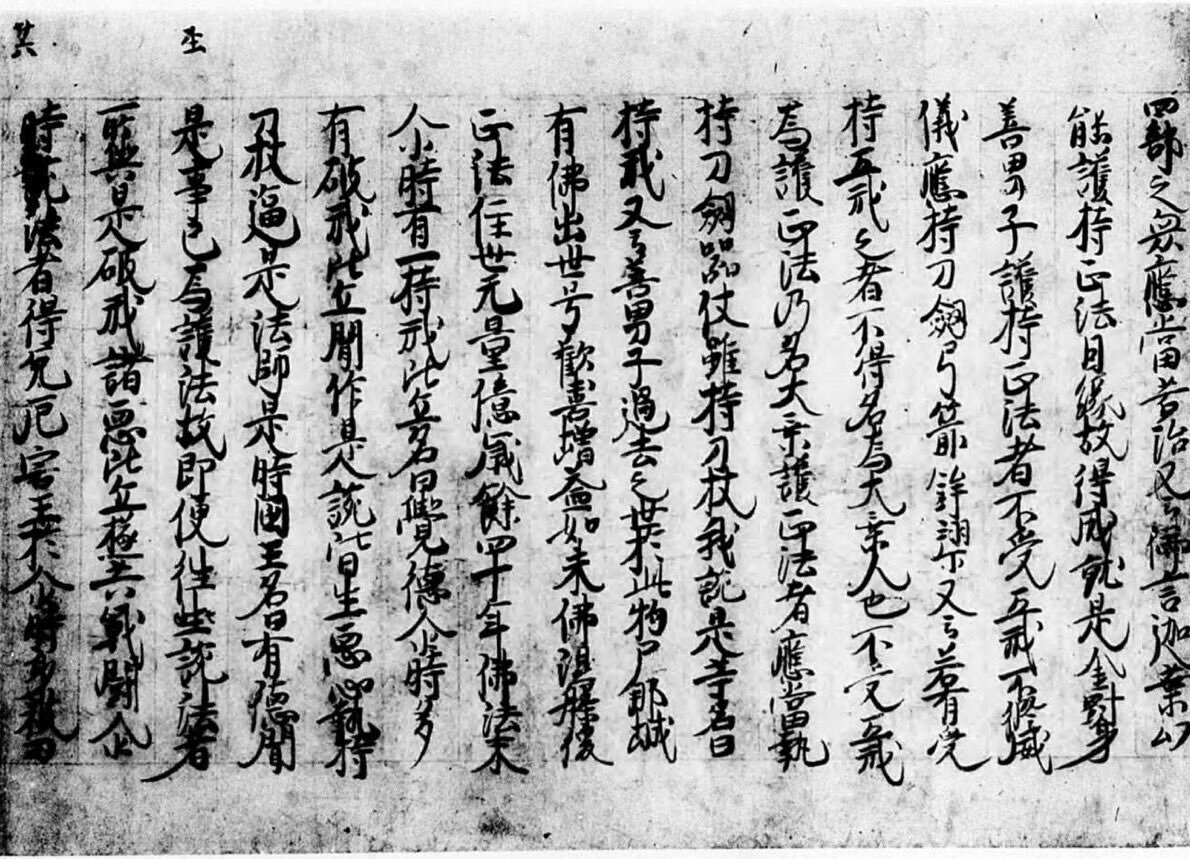 四部之衆應當苦治又云佛言迦葉以
能護持正法因縁故得成就是金剛身
善男子護持正法者不受五戒不修威
儀應持刀劔弓箭鉾槊又云若有受
持五戒之者不得名為大乗人也不受五戒
為護正法乃名大乗護正法者應當執
持刀劔器仗雖持刀杖我説是等名曰
持戒又云善男子過去之世於此拘尸那城
有佛出世号歓喜増益如来佛涅槃後
正法住世无量億歳餘四十年佛法末
尒時有一持戒比丘名曰覺徳尒時多
有破戒比丘聞作是説皆生悪心執持
刀杖逼是法師是時國王名曰有徳聞
是事已為護法故即便往至説法者
所與是破戒諸悪比丘極共戰闘尒
時説法者得免厄害王於尒時身被刀
其